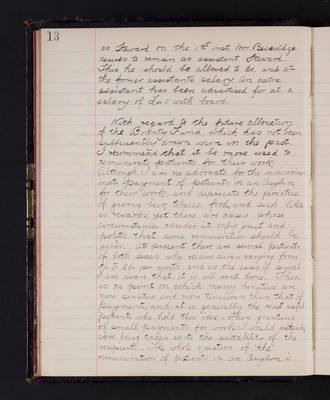 13
as Steward on the 1st inst, Mr. Beveridge
desires to remain as assistant Steward.
This he should be allowed to do, and at
the former assistant's salary. An extra
assistant has been advertised for at a
salary of with board.
With regard to the future allocation
of the Bounty Fund, which has not been
sufficiently drawn upon in the past
I recommend that it be more used to
remunerate patients for their work.
Although I am no advocate for the indiscrim-
inate payment of patients in an Asylum
for their work, and deprecate the practice
of giving beer, tobacco, food, and such like
as rewards, yet there are cases whose
circumstances render it only just and
politic that some remuneration should be
given. At present there are several patients
of both sexes who receive sums varying from
to per month, and in the case of several
I am aware that it is all sent home. There
is no point on which many lunatics are
more sensitive and more tenacious than that of
payment, and it is generally the most useful
patients who hold this idea. This granting
of small payments for work I would extend,
care being taken as to the suitability of the
recipient. The whole question of the
remuneration of patients in an Asylum is